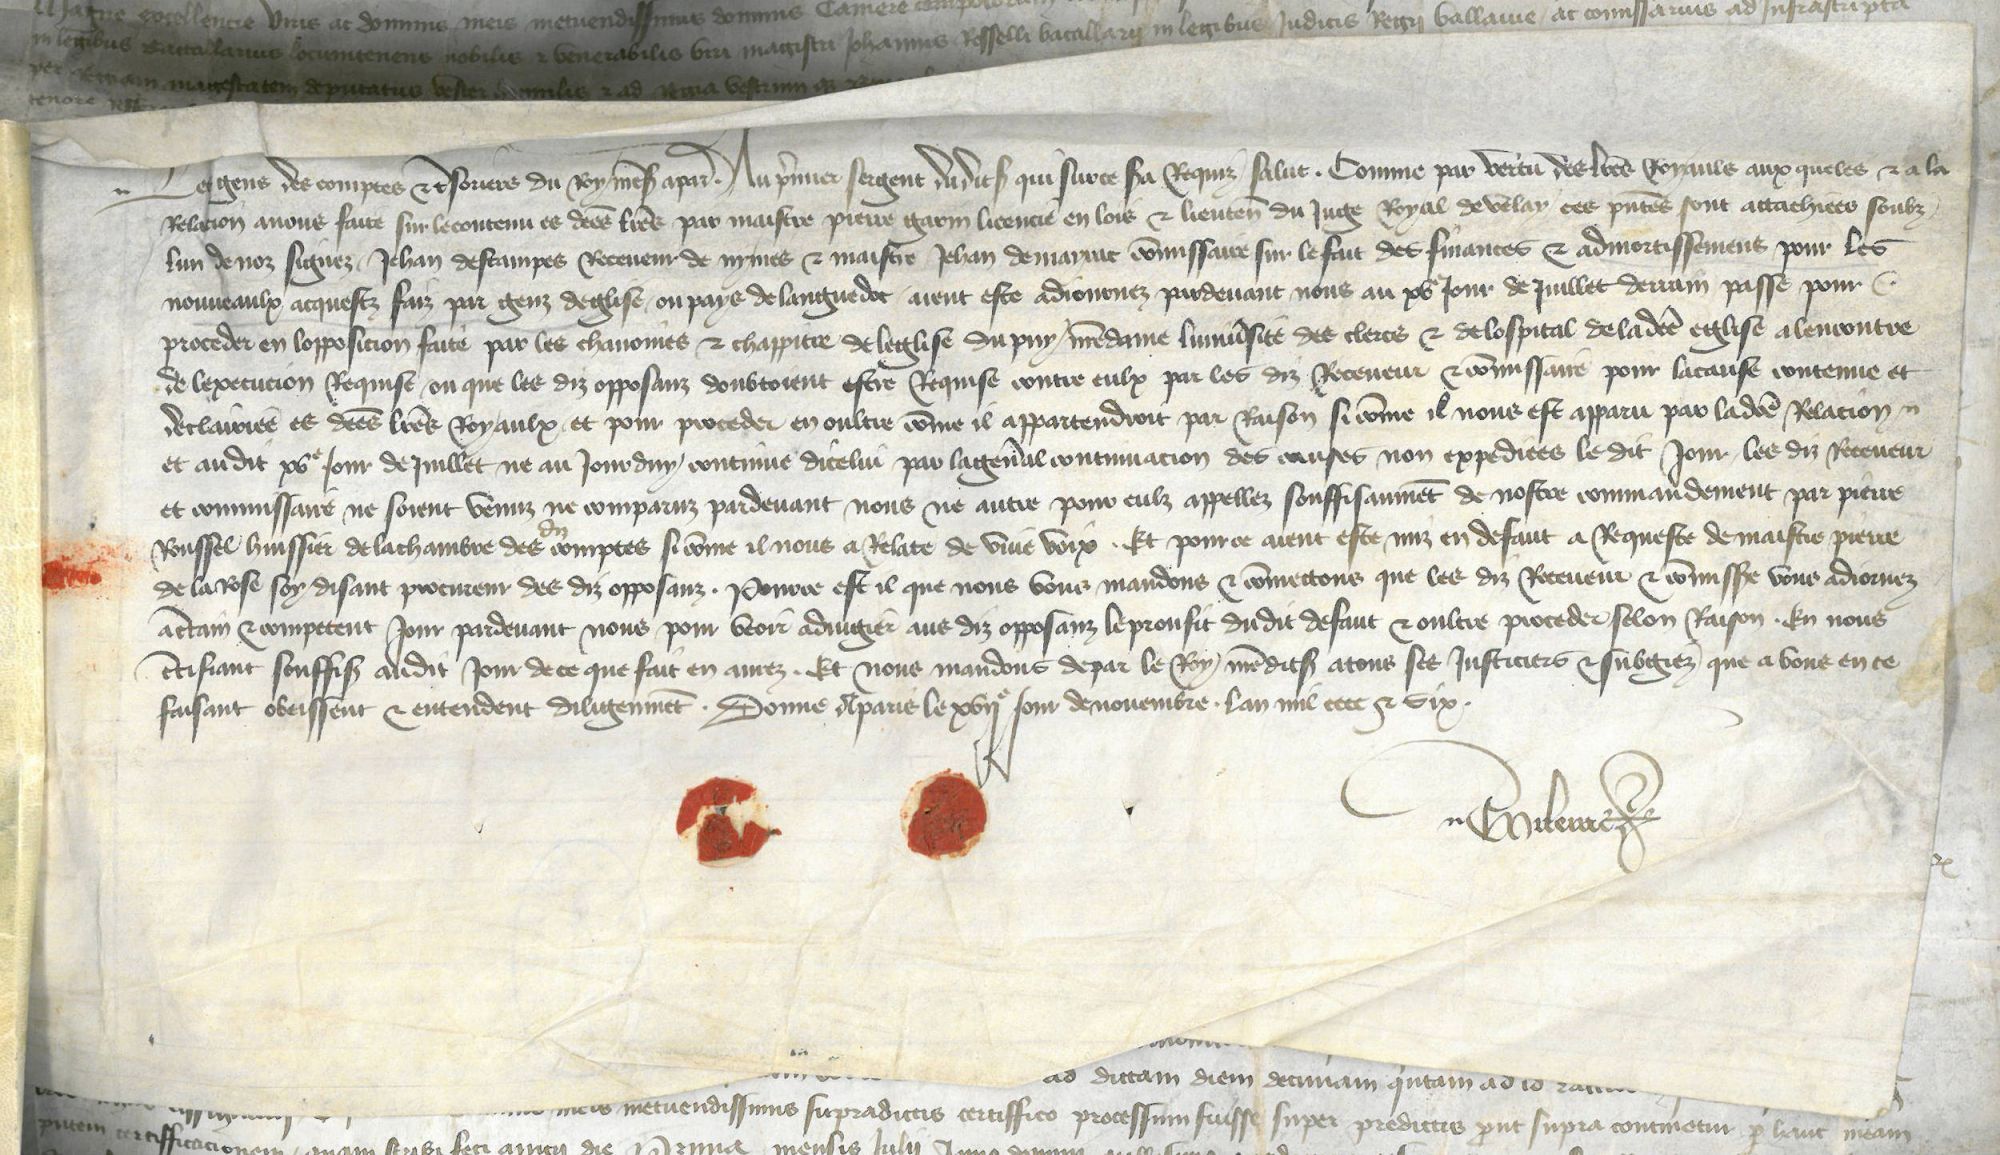 Magne excellencie viris ac dominis meis metuendissimis dominis Camere compotorum
in legibus bacallarius locumtenens nobilis et venerabilis viri magistri Johannis Rosselli bacallarii in legibus Judicis Regii Vallavie ac comissarius ad infrascripta
per Regiam magestatem deputatus vester humilis et ad
tenore
Les gens des comptes et tsoriers du Roy nres a par. Au pmier sergent dudit s qui sur ce sa Requiz salut. Comme par vertu des lres Royaulx aux queles et a la
Relacion a nous faite sur le contenu es dces lres par maistre pierre garin licencie en lois et lieuten du Juge Royal de velay ces pntes sont attachiees soubz
lun de noz signez Jehan destampes Receveur de nymes et maistre Jehan de marnac comissaire sur le fait des finances et admortissemens pour les
nouveaulx acquestz faiz par genz deglise ou pays de languedoc aient este adiournez pardevant nous au xve Jour de Juillet derrain passe pour
proceder en lopposicion faite par les chanoines et chappitre de leglise du puy ne dame luniversite des clercs et de lospital de la dce eglise a lencontre
de lexecucion Requise ou que les diz opposanz doubtoient estre Requise contre eulx par les diz Receveur et comissaire pour la cause contenue et
declairiee es dces lres Royaulx et pour proceder en oultre come il appartendroit par Raison si come il nous est apparu par la dce Relacion
et au dit xve Jour de Juillet ne au Jourduy continue dicelui par la genal continuacion des causes non expediees le dit Jour les diz Receveur
et commissaire ne soient venuz ne comparuz pardevant nous ne autre pour eulz appellez souffisanment de nostre commandement par pierre
Roussel huissier de la chambre des dis comptes si come il nous a Relate de vive voix. Et pour ce aient este miz en defaut a Requeste de maistre pierre
de la Rose soy disant procureur des diz opposanz. Pour ce est il que nous vous mandons et comectons que les diz Receveur et comisse vous adiornez
a ctain et competent Jour pardevant nous pour veoir adiugier aus diz opposanz le proufit du dit defaut et oultre proceder selon Raison. En nous
ctifiant souffis au dit Jour de ce que fait en aurez. Et nous mandons de par le Roy nre dit s a touz ses Justiciers et subgiez que a vous en ce
faisant obeissent et entendent diligenment. Donne a paris le xvije Jour de novembre. lan mil cccc et six.
ad dictam diem decimam qntam ad id
meis metuendissimis supradictis certiffico processum fuisse super predictis put supra continetur p hanc meam
certifficacionem quam scribi feci anicii die prima mensis Julii